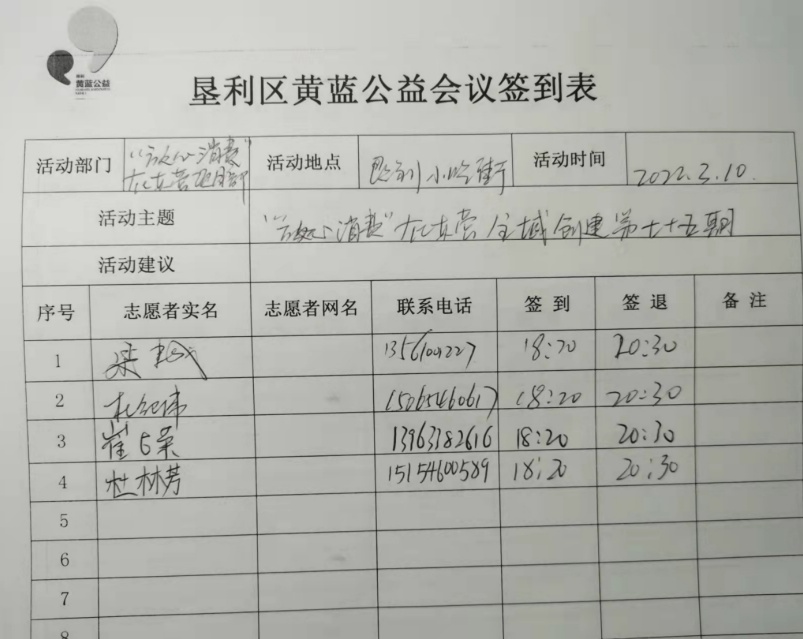 黄蓝公益
垦利区黄蓝公益会议签到表
活动部门 “放心消费”在东营项目部 活动地点 垦利小吃街 活动时间 2022.3.10.
活动主题 “放心消费”在东营全域创建第七十五期
活动建议
序号 志愿者实名 志愿者网名 联系电话 签到 签退 备注
1 18:20 20:30
2 15265460617 18:20 20:30
3 13963382616 18:20 20:30
4 杜林芳 15154600589 18:20 20:30
5
6
7
8